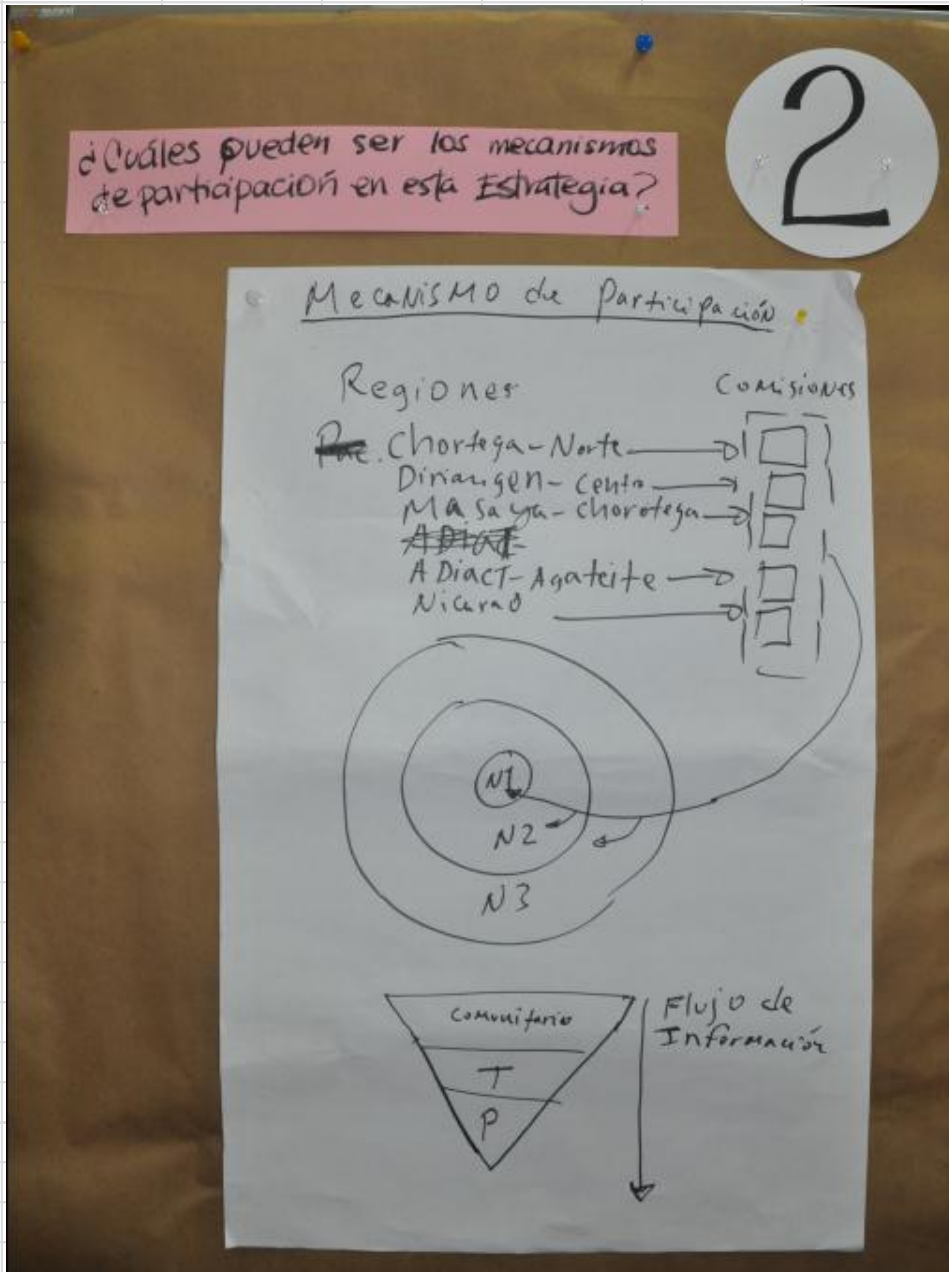 2
¿Cuáles pueden ser los mecanismos
de participación en esta Estrategia?
Mecanismo de Participación
Regiones
Comisiones
Chortega-Norte
Diriangen-Cento
Masaya-chorotega
ADiact-Agateite
Nicarao
N1
N2
N3
Comunitario
T
P
Flujo de
Información